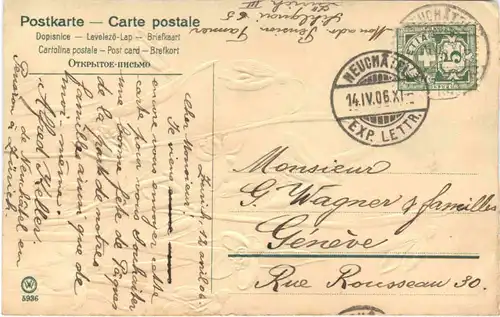 Postkarte – Carte postale
Dopisnice – Levelező-Lap – Briefkaart
Cartolina postale – Post card – Brefkort
ОТКРЫТОЕ-ПИСЬМО
Pension
Zürich III
65
NEUCHÂTEL
14.IV.06.XI
EXP. LETTR.
5
Monsieur
G. Wagner & familles
Genève
Rue Rousseau 30.
Zürich, 12 avril 06.
Cher Monsieur!
Je viens
encore vous envoyer cette
carte pour vous souhaiter
une bonne fête de Pâques
de la part de notre
famille ainsi que de
moi-même.
Alfred Keller.
de Neuchâtel en
Pension à
Zürich.
5936